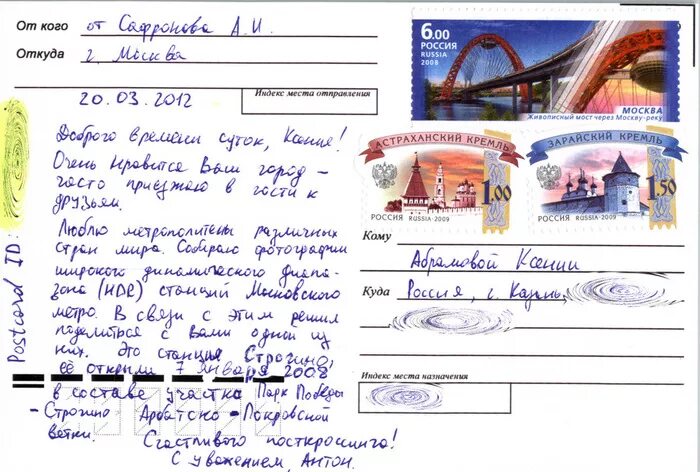 От кого от Сафронова А.И.
Откуда г. Москва
Индекс места отправления
20.03.2012
Доброго времени суток, Ксения!
Очень нравится Ваш город –
часто приезжаю в гости к
друзьям.
Люблю метрополитены различных
стран мира. Собираю фотографии
широкого динамического диапа-
зона (HDR) станций Московского
метро. В связи с этим решил
поделиться с Вами одной из
них. Это станция Строгино,
её открыли 7 января 2008
в составе участка Парк Победы
– Строгино Арбатско-Покровской
ветки.
Счастливого посткроссинга!
С уважением, Антон.
Postcard ID:
6.00
РОССИЯ
RUSSIA
2008
МОСКВА
Живописный мост через Москву-реку
АСТРАХАНСКИЙ КРЕМЛЬ
1.00
РОССИЯ RUSSIA·2009
ЗАРАЙСКИЙ КРЕМЛЬ
1.50
РОССИЯ RUSSIA·2009
Кому Абрамовой Ксении
Куда Россия, г. Казань,
Индекс места назначения